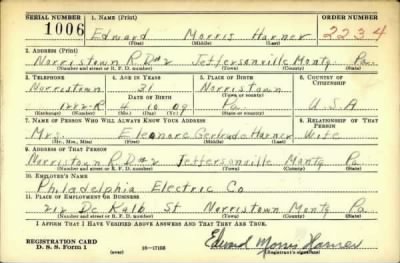 SERIAL NUMBER 1. NAME (Print) ORDER NUMBER
1006 Edward Morris Harner 2234
(First) (Middle) (Last)
2. ADDRESS (Print)
Norristown R.D#2 Jeffersonville Montg Pa.
(Number and street or R. F. D. number) (Town) (County) (State)
3. TELEPHONE 4. AGE IN YEARS 5. PLACE OF BIRTH 6. COUNTRY OF CITIZENSHIP
Norristown 31 Norristown
DATE OF BIRTH (Town or county)
1222-R 4 10 09 Pa U.S.A
(Exchange) (Number) (Mo.) (Day) (Yr.) (State or country)
7. NAME OF PERSON WHO WILL ALWAYS KNOW YOUR ADDRESS 8. RELATIONSHIP OF THAT PERSON
Mrs. Eleonore Gertrude Harner Wife
(Mr., Mrs., Miss) (First) (Middle) (Last)
9. ADDRESS OF THAT PERSON
Norristown R.D#2 Jeffersonville Montg Pa
(Number and street or R. F. D. number) (Town) (County) (State)
10. EMPLOYER'S NAME
Philadelphia Electric Co
11. PLACE OF EMPLOYMENT OR BUSINESS
212 De Kalb St Norristown Montg Pa
(Number and street or R. F. D. number) (Town) (County) (State)
I AFFIRM THAT I HAVE VERIFIED ABOVE ANSWERS AND THAT THEY ARE TRUE.
REGISTRATION CARD
D. S. S. Form 1 (over) 16-17105 Edward Morris Harner
(Registrant's signature)